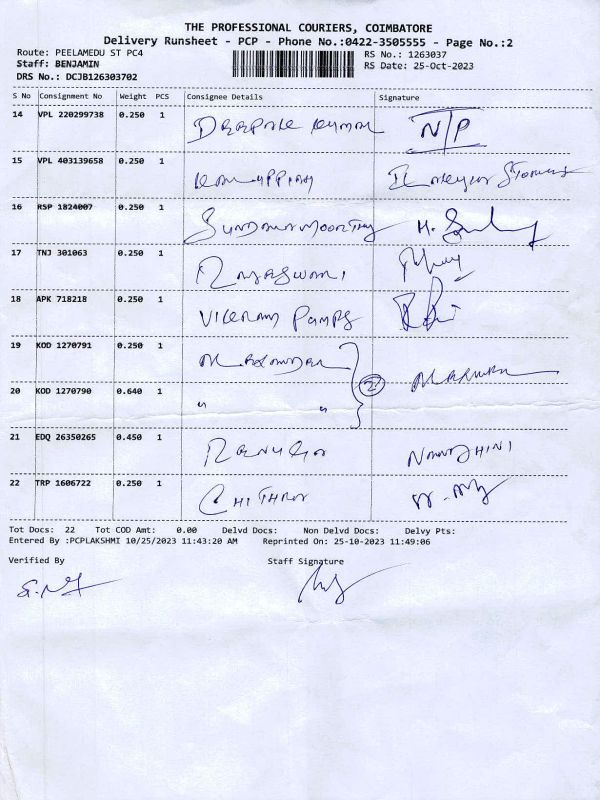 THE PROFESSIONAL COURIERS, COIMBATORE
Delivery Runsheet - PCP - Phone No.:0422-3505555 - Page No.:2
Route: PEELAMEDU ST PC4 RS No.: 1263037
Staff: BENJAMIN RS Date: 25-Oct-2023
DRS No.: DCJB126303702
S No Consignment No Weight PCS Consignee Details Signature
14 VPL 220299738 0.250 1 N/P
15 VPL 403139658 0.250 1
16 RSP 1824007 0.250 1 SUNDARAMOORTHY
17 TNJ 301063 0.250 1 RAJESWARI
18 APK 718218 0.250 1 VIKRAM PUMPS
19 KOD 1270791 0.250 1
20 KOD 1270790 0.640 1 " " 2
21 EDQ 26350265 0.450 1 RENUGA NANDHINI
22 TRP 1606722 0.250 1 CHITHRA
Tot Docs: 22 Tot COD Amt: 0.00 Delvd Docs: Non Delvd Docs: Delvy Pts:
Entered By :PCPLAKSHMI 10/25/2023 11:43:20 AM Reprinted On: 25-10-2023 11:49:06
Verified By Staff Signature